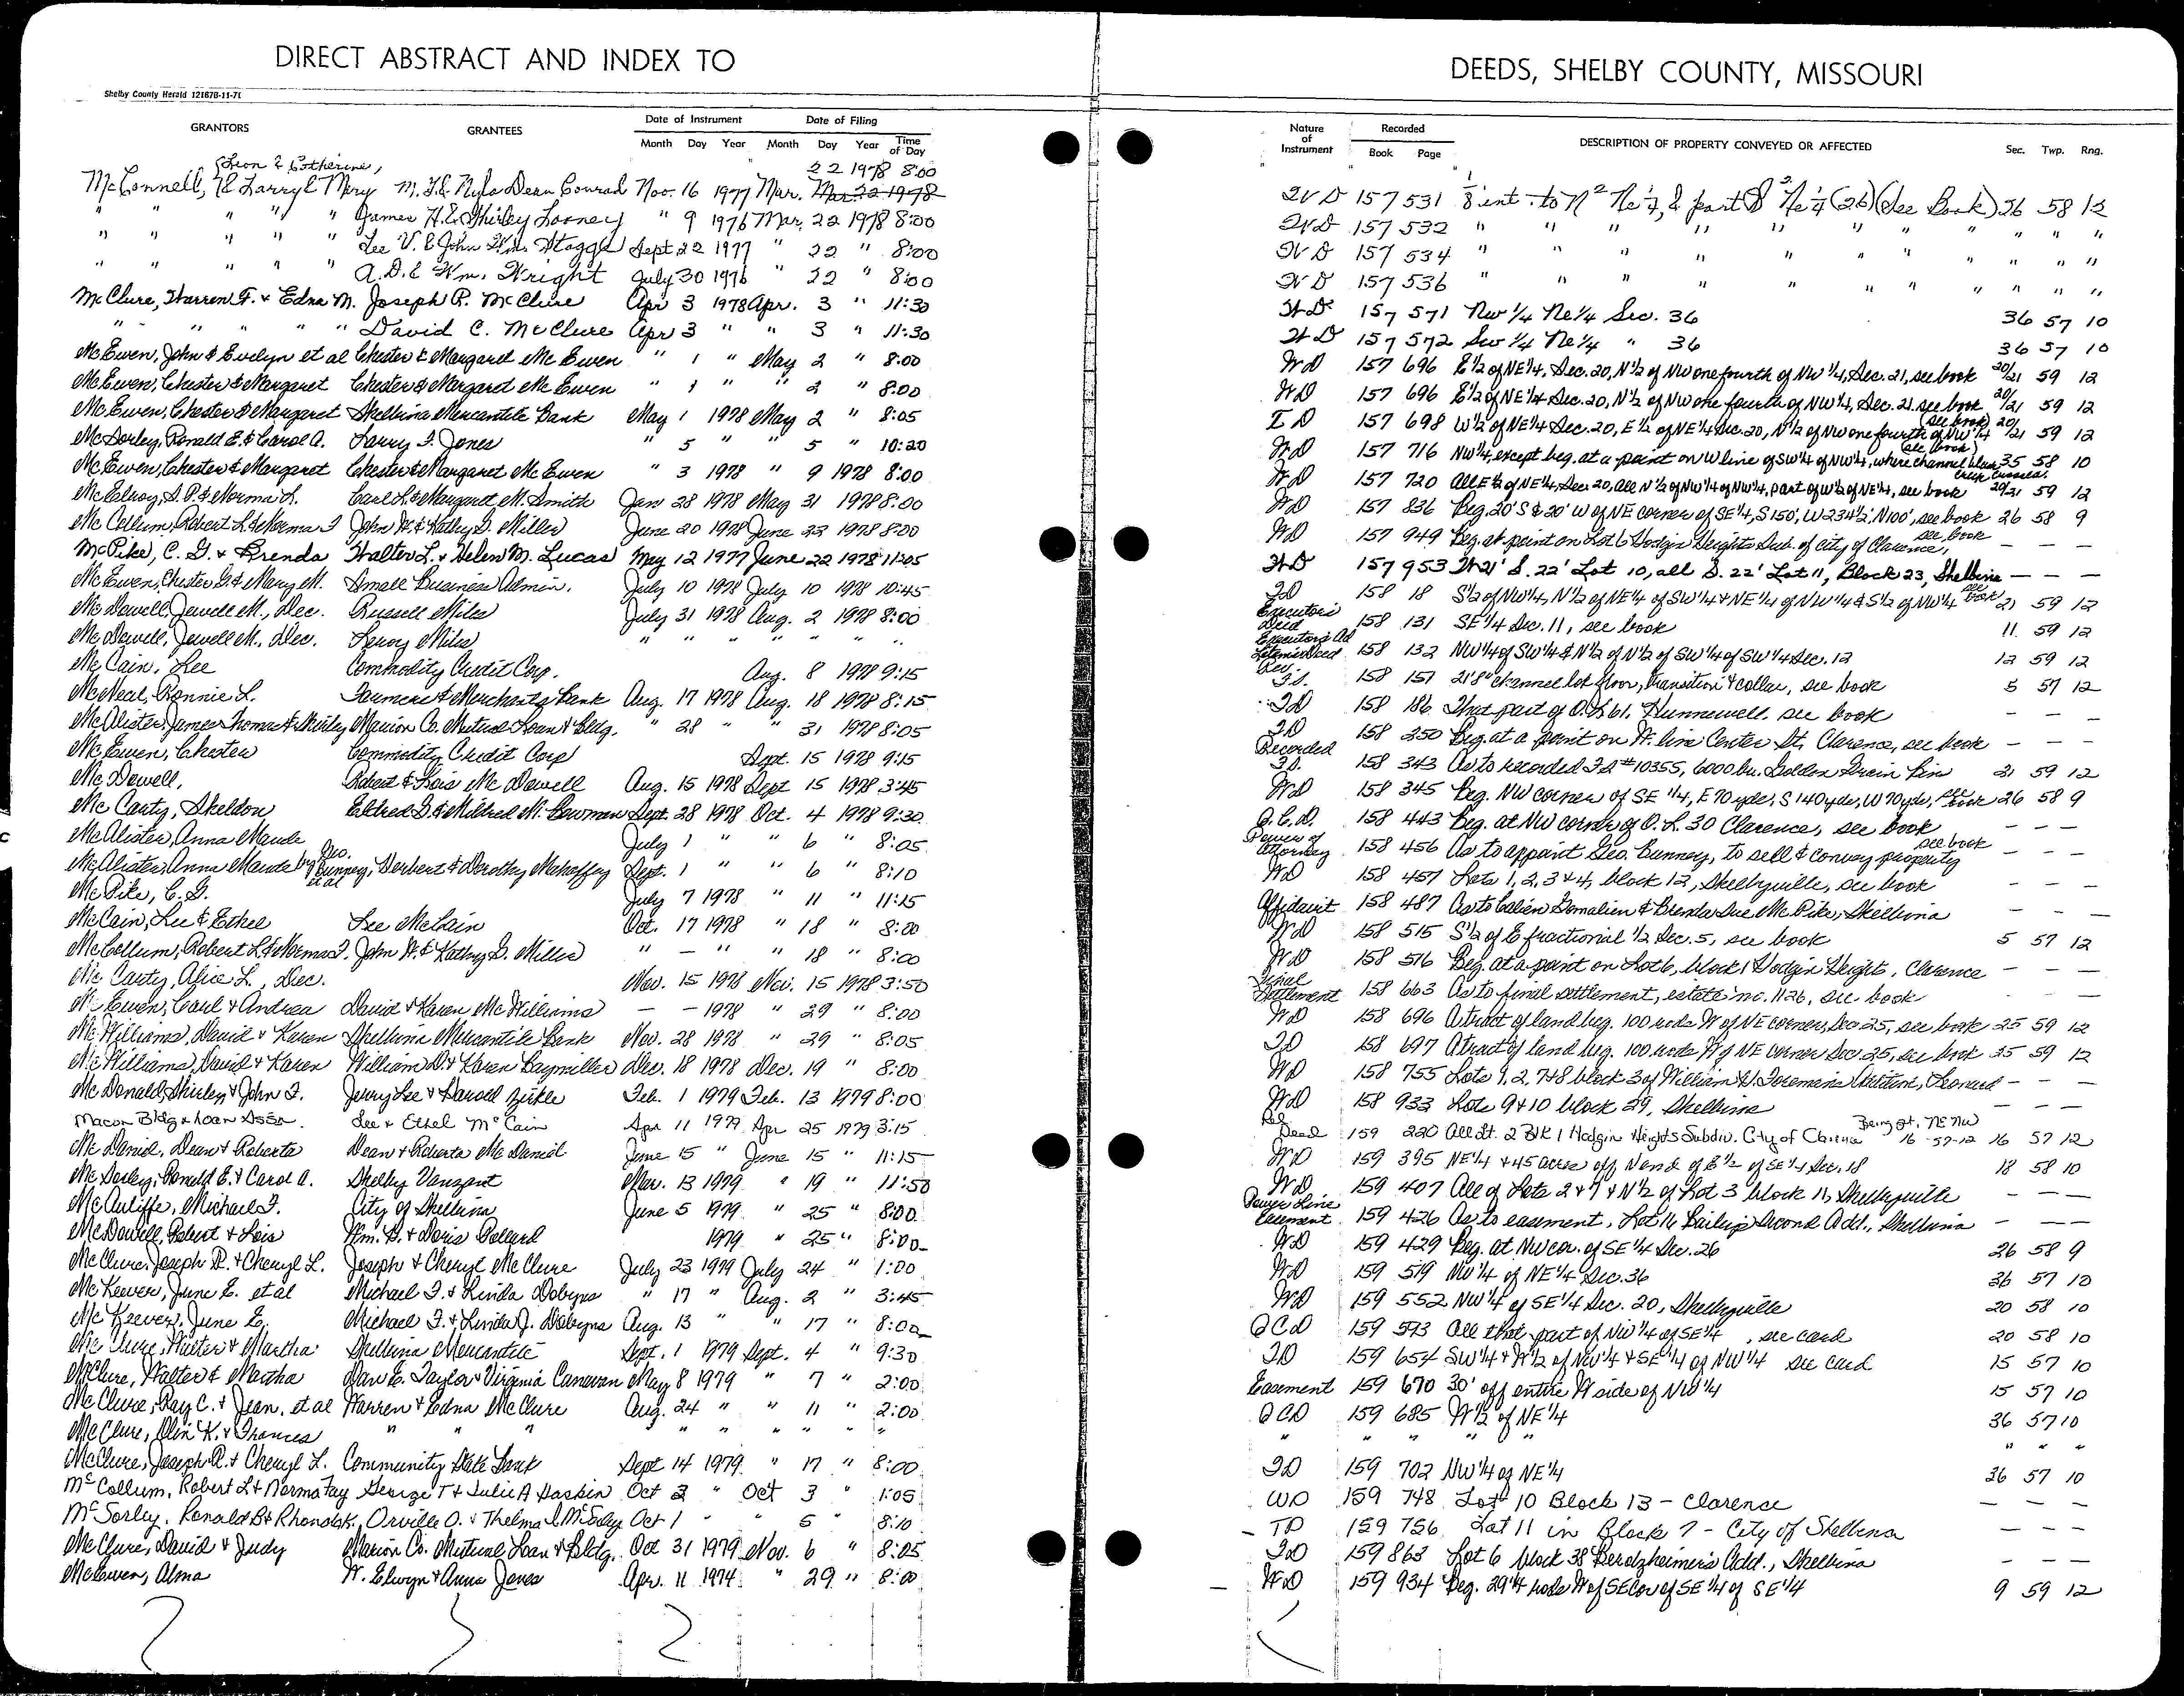 DIRECT ABSTRACT AND INDEX TO
Shelby County Herald 121678-11-71
GRANTORS GRANTEES Date of Instrument Date of Filing
Month Day Year Month Day Year Time of Day
(Leon & Catherine,
22 1978 8:00
McConnell, & Larry & Mary M. F. & Nyla Dean Conrad Nov. 16 1977 Mar. Mar. 22 1978
" " " " " James H. & Shirley Looney " 9 1976 Mar. 22 1978 8:00
" " " " " Lee V. & John Wm. Staggs Sept 22 1977 " 22 " 8:00
" " " " " A.D. & Wm. Wright July 30 1976 " 22 " 8:00
McClure, Warren F. & Edna M. Joseph R. McClure Apr 3 1978 Apr. 3 " 11:30
" " " " " David C. McClure Apr 3 " " 3 " 11:30
McEwen, John & Evelyn et al Chester & Margaret McEwen " 1 " May 2 " 8:00
McEwen, Chester & Margaret Chester & Margaret McEwen " 1 " " 2 " 8:00
McEwen, Chester & Margaret Shelbina Mercantile Bank May 1 1978 May 2 " 8:05
McSorley, Ronald E. & Carol A. Larry J. Jones " 5 " " 5 " 10:20
McEwen, Chester & Margaret Chester & Margaret McEwen " 3 1978 " 9 1978 8:00
McElroy, S. P. & Norma L. Carl L. & Margaret M. Smith Jan 28 1978 May 31 1978 8:00
McCollum, Robert L. & Norma F John W. & Kathy D. Miller June 20 1978 June 22 1978 8:00
McPike, C. G. & Brenda Walter L. & Helen M. Lucas May 12 1977 June 22 1978 11:05
McEwen, Chester G. & Mary M. Small Business Admin. July 10 1978 July 10 1978 10:45
McDowell, Jewell M., Dec. Russell Miles July 31 1978 Aug. 2 1978 8:00
McDowell, Jewell M., Dec. Leroy Miles " " " " " "
McCain, Lee Commodity Credit Corp. Aug. 8 1978 9:15
McNeal, Ronnie L. Farmers & Merchants Bank Aug. 17 1978 Aug. 18 1978 8:15
McAlister, James Thomas & Shirley Marion Co. Mutual Loan & Bldg. " 28 " " 31 1978 8:05
McEwen, Chester Commodity Credit Corp Sept. 15 1978 9:15
McDowell, Robert & Lois McDowell Aug. 15 1978 Sept 15 1978 3:45
McCarty, Sheldon Eldred D. & Mildred M. Bowman Sept. 28 1978 Oct. 4 1978 9:30
McAlister, Anna Maude July 1 " " 6 " 8:05
McAlister, Anna Maude by Geo. Bunney, et al Herbert & Dorothy Mahaffey Sept. 1 " " 6 " 8:10
McPike, C. G. July 7 1978 " 11 " 11:15
McCain, Lee & Ethel Lee McCain Oct. 17 1978 " 18 " 8:00
McCollum, Robert L. & Norma F. John W. & Kathy D. Miller " — " " 18 " 8:00
McCarty, Alice L., Dec. Nov. 15 1978 Nov. 15 1978 3:50
McEwen, Carl & Andrea David & Karen McWilliams — — 1978 " 29 " 8:00
McWilliams, David & Karen Shelbina Mercantile Bank Nov. 28 1978 " 29 " 8:05
McWilliams, David & Karen William D. & Karen Baymiller Dec. 18 1978 Dec. 19 " 8:00
McDonald, Shirley & John F. Jerry Lee & Harold Zirkle Feb. 1 1979 Feb. 13 1979 8:00
Macon Bldg & Loan Assn. Lee & Ethel McCain Apr 11 1979 Apr 25 1979 3:15
McDaniel, Dean & Roberta Dean & Roberta McDaniel June 15 " June 15 " 11:15
McSorley, Ronald E. & Carol A. Shelby Vanzant Mar. 13 1979 " 19 " 11:50
McAuliffe, Michael F. City of Shelbina June 5 1979 " 25 " 8:00
McDowell, Robert & Lois Wm. B. & Doris Pollard 1979 " 25 " 8:00
McClure, Joseph R. & Cheryl L. Joseph & Cheryl McClure July 23 1979 July 24 " 1:00
McKeever, June E. et al Michael F. & Linda Dobyns " 17 " Aug. 2 " 3:45
McKeever, June E. Michael F. & Linda J. Dobyns Aug. 13 " " 17 " 8:00
McClure, Walter & Martha Shelbina Mercantile Sept. 1 1979 Sept. 4 " 9:30
McClure, Walter & Martha Dan E. Taylor & Virginia Canavan May 8 1979 " 7 " 2:00
McClure, Ray C. & Jean, et al Warren & Edna McClure Aug. 24 " " 11 " 2:00
McClure, Olin K. & Frances " " " " " " " " "
McClure, Joseph R. & Cheryl L. Community State Bank Sept 14 1979 " 17 " 8:00
McCollum, Robert L & Norma Fay George T & Julie A Haskin Oct 2 " Oct 3 " 1:05
McSorley, Ronald B & Rhonda K. Orville O. & Thelma L McSorley Oct 1 " " 5 " 8:10
McClure, David & Judy Marion Co. Mutual Loan & Bldg. Oct 31 1979 Nov. 6 " 8:05
McEwen, Alma W. Elwyn & Anna Jones Apr. 11 1974 " 29 " 8:00
DEEDS, SHELBY COUNTY, MISSOURI
Nature of Instrument Recorded DESCRIPTION OF PROPERTY CONVEYED OR AFFECTED Sec. Twp. Rng.
Book Page
WD 157 531 1/8 int. to N 2 Ne 1/4, & part S 2 Ne 1/4 (26) (See Book) 26 58 12
WD 157 532 " " " " " " " " " "
WD 157 534 " " " " " " " " "
WD 157 536 " " " " " " " " "
WD 157 571 Nw 1/4 Ne 1/4 Sec. 36 36 57 10
WD 157 572 Sw 1/4 Ne 1/4 " 36 36 57 10
WD 157 696 E 1/2 of NE 1/4, Sec. 20, N 1/2 of NW one fourth of NW 1/4, Sec. 21, see book 20/21 59 12
WD 157 696 E 1/2 of NE 1/4 Sec. 20, N 1/2 of NW one fourth of NW 1/4, Sec. 21. see book 20/21 59 12
TD 157 698 W 1/2 of NE 1/4 Sec. 20, E 1/2 of NE 1/4 Sec. 20, N 1/2 of NW one fourth of NW 1/4 (see book) 20/21 59 12
WD 157 716 NW 1/4, except beg. at a point on W line of SW 1/4 of NW 1/4, where channel black creek crosses (see book) 35 58 10
WD 157 720 All E 1/2 of NE 1/4, Sec. 20, All N 1/2 of NW 1/4 of NW 1/4, part of W 1/2 of NE 1/4, see book 20/21 59 12
WD 157 836 Beg. 20' S & 20' W of NE corner of SE 1/4, S 150', W 234 1/2', N 100', see book 26 58 9
WD 157 949 Beg. at point on Lot 6 Hodgin Heights Sub. of city of Clarence, see book — — —
WD 157 953 W 21' S. 22' Lot 10, all S. 22' Lot 11, Block 23, Shelbina — — —
TD 158 18 S 1/2 of NW 1/4, N 1/2 of NE 1/4 of SW 1/4 & NE 1/4 of NW 1/4 & S 1/2 of NW 1/4 see book 21 59 12
Executor's Deed 158 131 SE 1/4 Sec. 11, see book 11 59 12
Executor's Deed 158 132 NW 1/4 of SW 1/4 & N 1/2 of N 1/2 of SW 1/4 of SW 1/4 Sec. 12 12 59 12
158 157 21'8" channel lok floor, transition & collar, see book 5 57 12
TD 158 186 That part of O. L. 61, Hunnewell, see book — — —
TD 158 250 Beg. at a point on W. line Center St. Clarence, see book — — —
Recorded 158 343 As to recorded #10355, 6000 bu. Golden Grain Bin 21 59 12
WD 158 345 Beg. NW corner of SE 1/4, E 70 yds, S 140 yds, W 70 yds, see book 26 58 9
Q.C.D. 158 443 Beg. at NW corner of O. L. 30 Clarence, see book — — —
Power of Attorney 158 456 As to appoint Geo. Bunney, to sell & convey property see book — — —
WD 158 457 Lots 1, 2, 3 & 4, block 12, Shelbyville, see book — — —
Affidavit 158 487 As to & Brenda Sue McPike, Shelbina — — —
WD 158 515 S 1/2 of E fractional 1/2 Sec. 5, see book 5 57 12
WD 158 516 Beg. at a point on Lot 6, block 1 Hodgin Heights, Clarence — — —
Final Settlement 158 663 As to final settlement, estate no. 1126, see book — —
WD 158 696 A tract of land beg. 100 rods W of NE corner, Sec 25, see book 25 59 12
TD 158 697 A tract of land beg. 100 rods W of NE corner Sec. 25, see book 25 59 12
WD 158 755 Lots 1, 2, 7 & 8 block 3 of William H. Foreman's Addition, Leonard — — —
WD 158 933 Lots 9 & 10 block 29, Shelbina — — —
Rel Deed 159 220 All Lt. 2 Blk 1 Hodgin Heights Subdiv. City of Clarence Being pt. NE NW 16 57-12 16 57 12
WD 159 395 NE 1/4 & 45 acres off N end of E 1/2 of SE 1/4 Sec. 18 18 58 10
WD 159 407 All of Lots 2 & 7 & N 1/2 of Lot 3 block 11, Shelbyville — — —
Power Line Easement 159 426 As to easement, Lot 16 Second Add., Shelbina — — —
WD 159 429 Beg. at NW cor. of SE 1/4 Sec. 26 26 58 9
WD 159 519 NW 1/4 of NE 1/4 Sec. 36 36 57 10
WD 159 552 NW 1/4 of SE 1/4 Sec. 20, Shelbyville 20 58 10
QCD 159 593 All that part of NW 1/4 of SE 1/4, see card 20 58 10
TD 159 654 SW 1/4 & W 1/2 of NW 1/4 & SE 1/4 of NW 1/4 see card 15 57 10
Easement 159 670 30' off entire W side of NW 1/4 15 57 10
QCD 159 685 W 1/2 of NE 1/4 36 57 10
" " " " " " " "
TD 159 702 NW 1/4 of NE 1/4 36 57 10
WD 159 748 Lot 10 Block 13 - Clarence — — —
TD 159 756 Lot 11 in Block 7 - City of Shelbina — — —
TD 159 863 Lot 6 block 38 Berdzheimer's Add., Shelbina — — —
WD 159 934 Beg. 29 1/4 rods W of SE Cor of SE 1/4 of SE 1/4 9 59 12